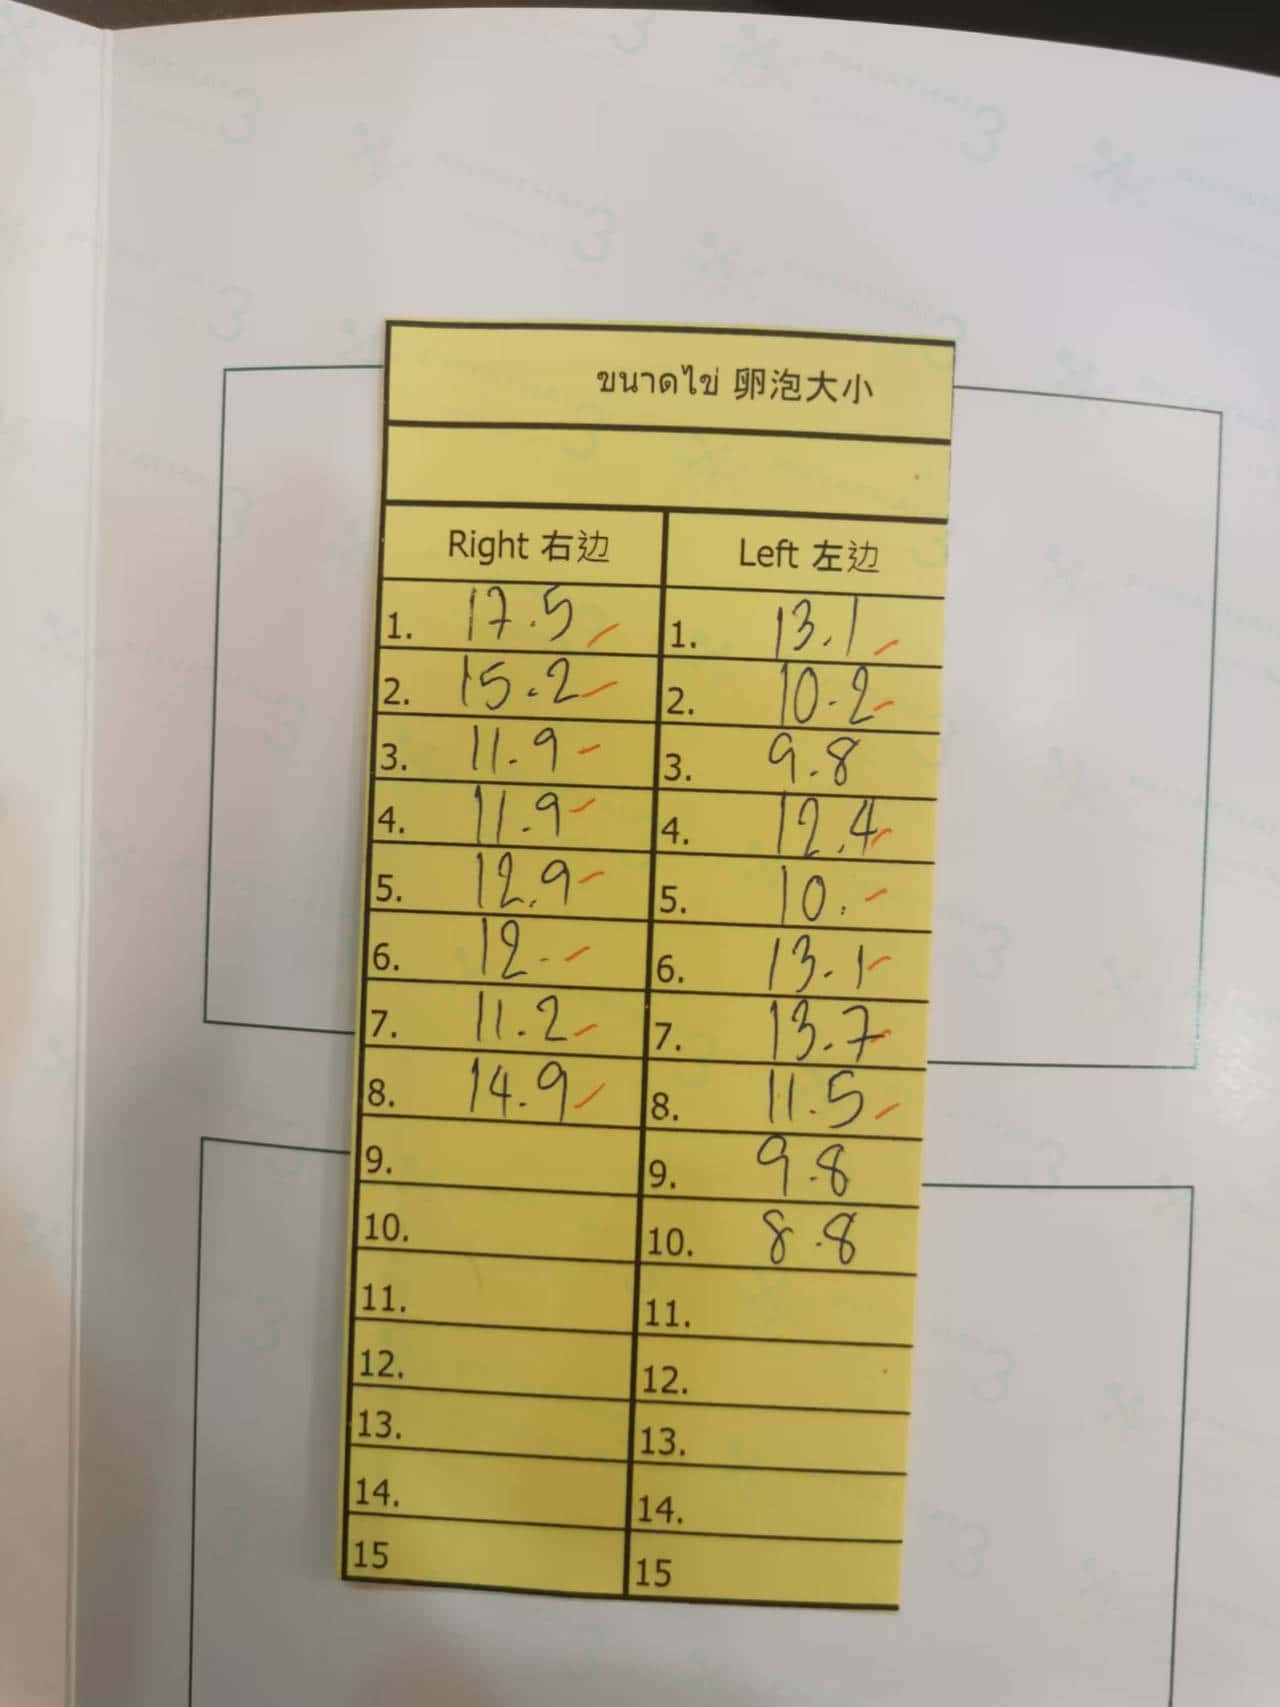 ขนาดไข่ 卵泡大小
Right 右边 Left 左边
1. 17.5 1. 13.1
2. 15.2 2. 10.2
3. 11.9 3. 9.8
4. 11.9 4. 12.4
5. 12.9 5. 10.
6. 12. 6. 13.1
7. 11.2 7. 13.7
8. 14.9 8. 11.5
9. 9. 9.8
10. 10. 8.8
11. 11.
12. 12.
13. 13.
14. 14.
15 15